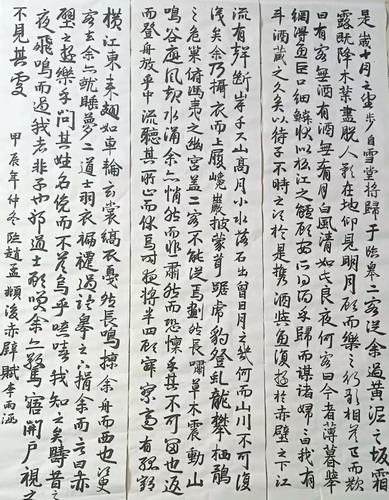 是歲十月之望步自雪堂將歸于臨皋二客從余過黃泥之坂霜
露既降木葉盡脫人影在地仰見明月顧而樂之行歌相荅已而歎
曰有客無酒有酒無肴月白風清如此良夜何客曰今者薄暮舉
網得魚巨口細鱗狀似松江之鱸顧安所得酒乎歸而謀諸婦婦曰我有
斗酒藏之久矣以待子不時之須於是攜酒與魚復遊於赤壁之下江
流有聲斷岸千尺山高月小水落石出曾日月之幾何而山川不可復
識矣余乃攝衣而上履巉巖披蒙茸踞虎豹登虬龍攀栖鶻
之危巢俯馮夷之幽宮蓋二客不能從焉劃然長嘯草木震動山
鳴谷應風起水涌余亦悄然而悲肅然而恐凜乎其不可留也返
而登舟放乎中流聽其所止而休焉時夜將半四顧寂寥適有孤鶴
橫江東來翅如車輪玄裳縞衣戛然長鳴掠余舟而西也須臾
客去余亦就睡夢二道士羽衣蹁躚過臨皋之下揖余而言曰赤
壁之遊樂乎問其姓名俛而不答嗚乎噫嘻我知之矣疇昔之
夜飛鳴而過我者非子也邪道士顧笑余亦驚寤開戶視之
不見其處
甲辰年仲冬臨趙孟頫後赤壁賦李雨涵